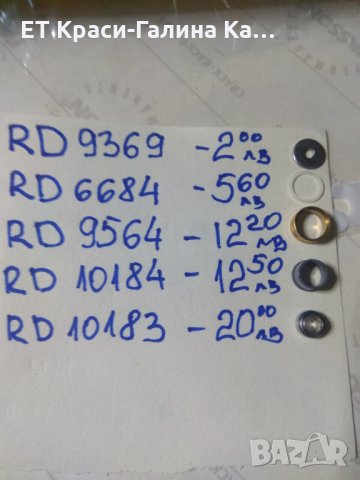 ЕТ.Краси-Галина Ка...
RD 9369 - 2⁰⁰ лв
RD 6684 - 5⁶⁰ лв
RD 9564 - 12²⁰ лв
RD 10184 - 12⁵⁰ лв
RD 10183 - 20⁰⁰ лв
bazar